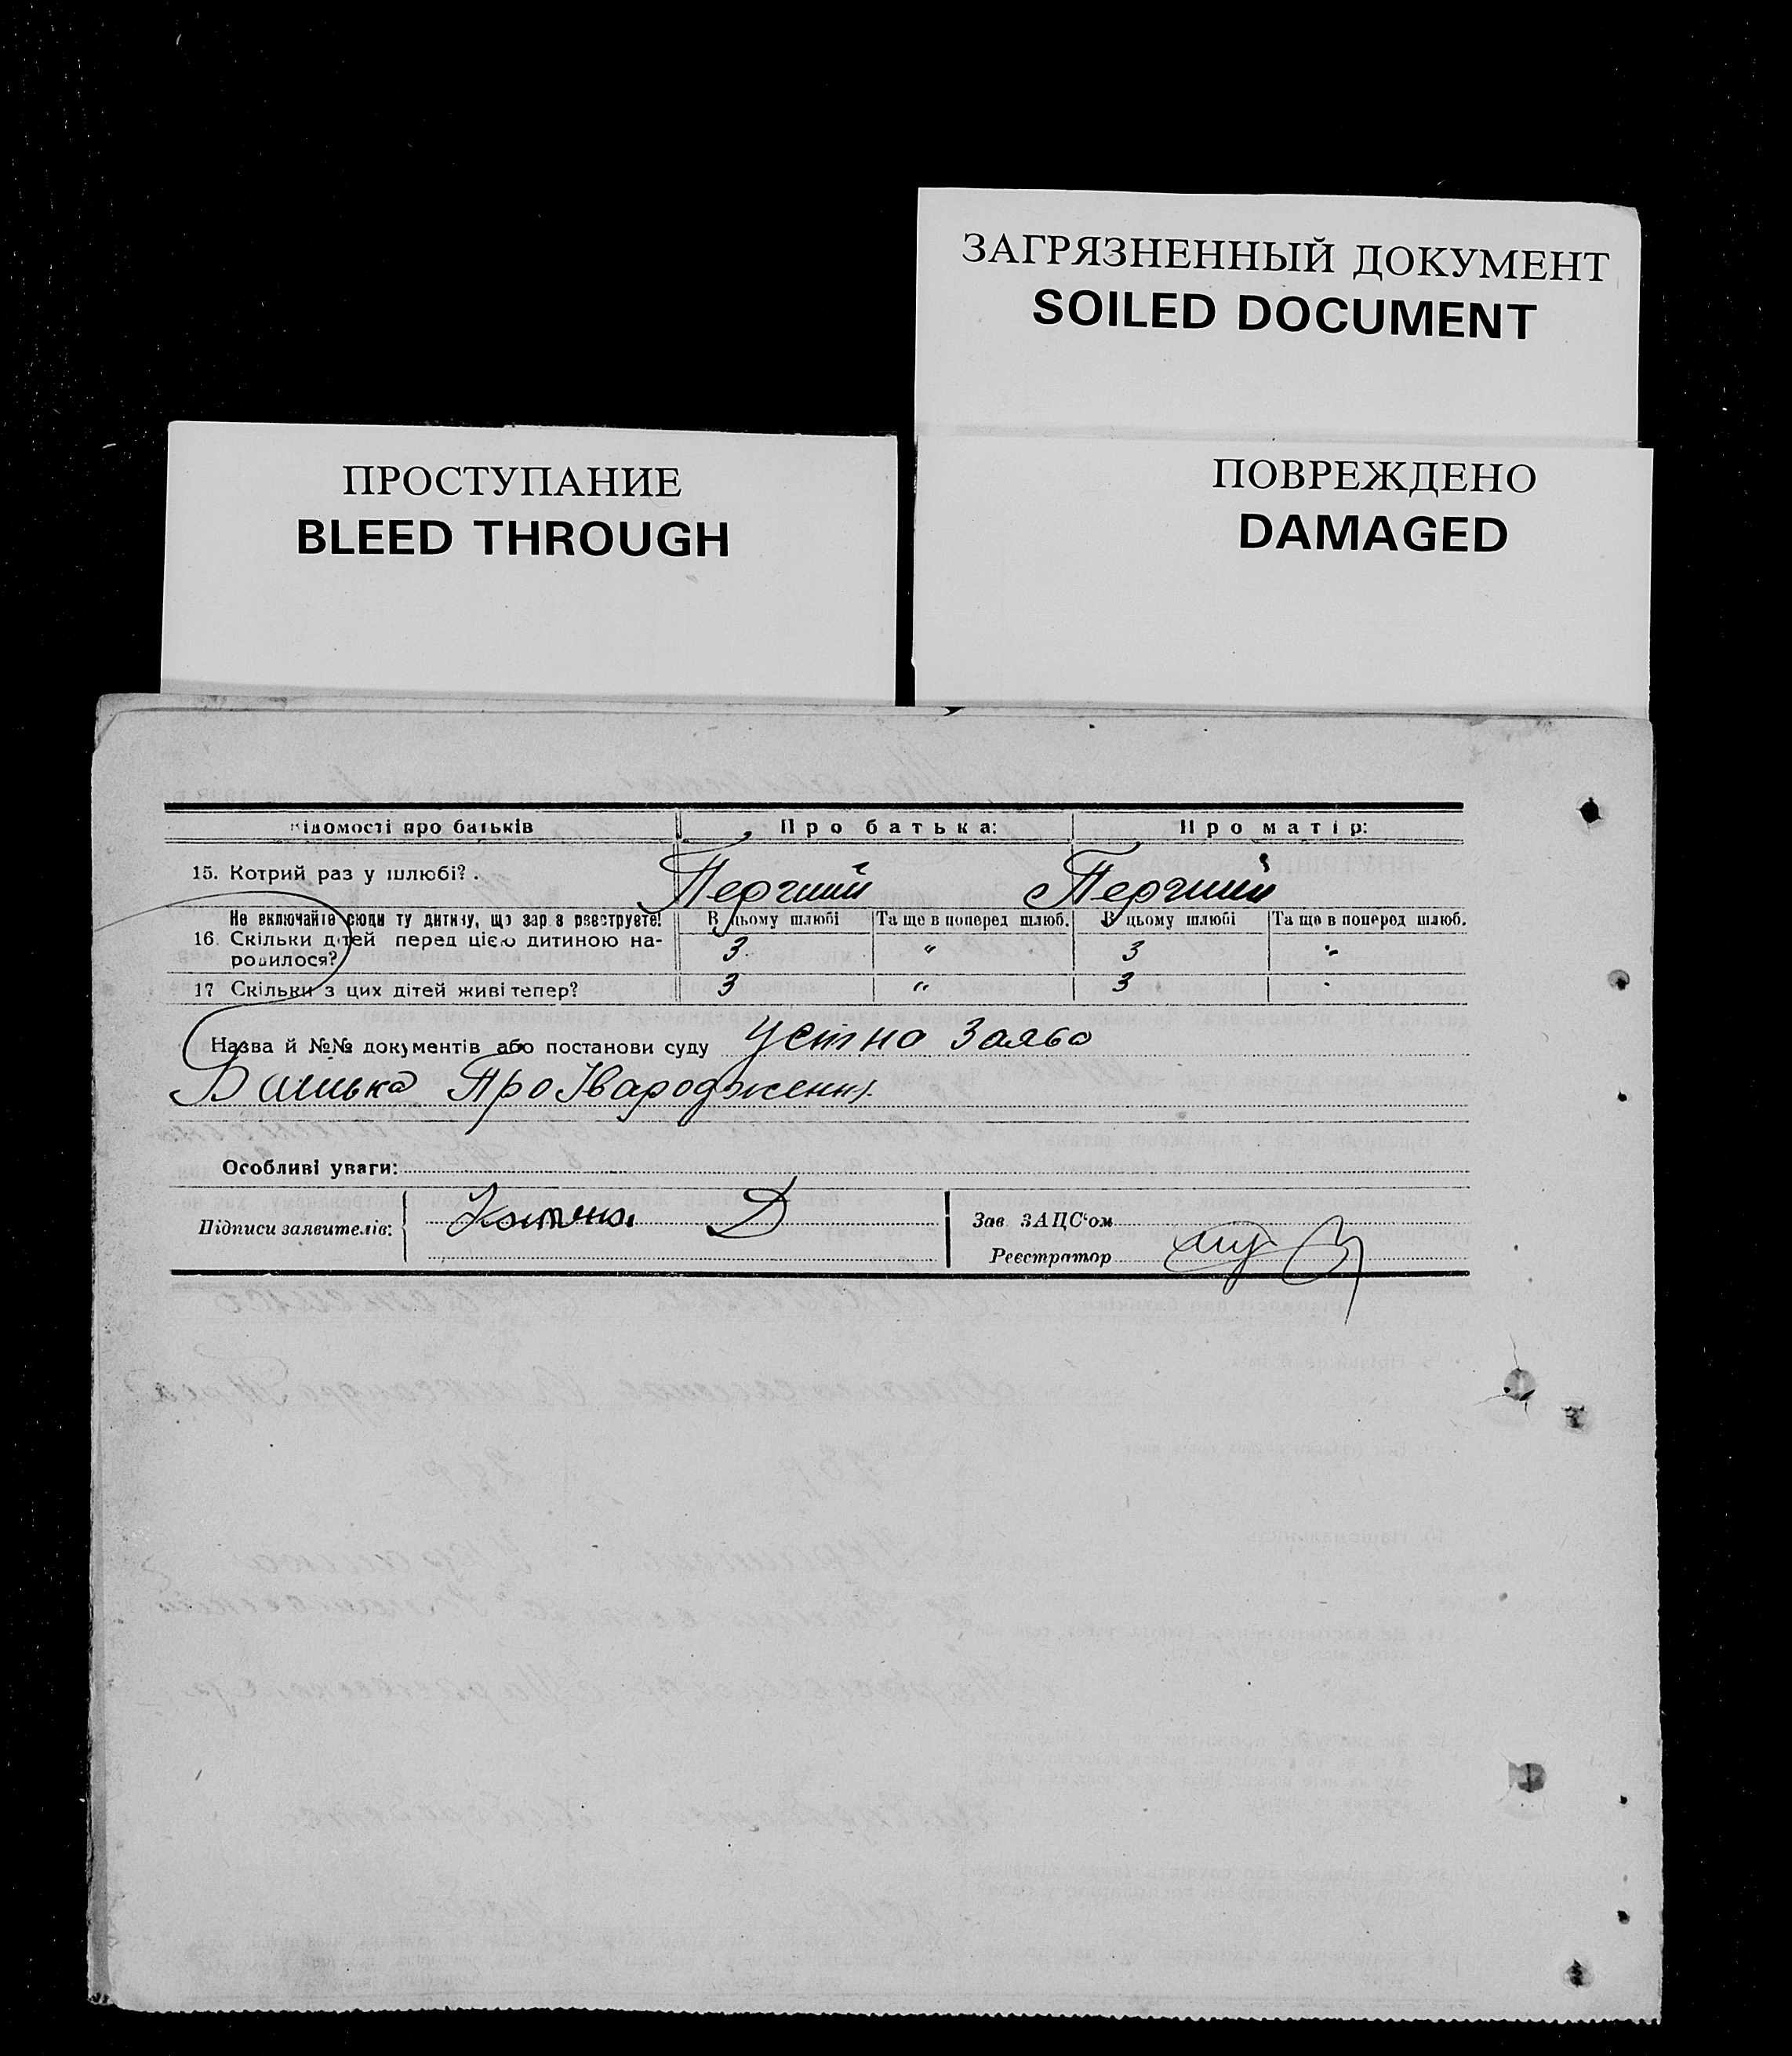 ЗАГРЯЗНЕННЫЙ ДОКУМЕНТ
SOILED DOCUMENT
ПРОСТУПАНИЕ
BLEED THROUGH
ПОВРЕЖДЕНО
DAMAGED
ідомості про батьків Про батька: Про матір:
15. Котрий раз у шлюбі? . Перший Перший
Не включайте сюди ту дитину, що зараз реєструєте! В цьому шлюбі Та ще в поперед шлюб. В цьому шлюбі Та ще в поперед шлюб.
16. Скільки дітей перед цією дитиною на-
родилося? 3 " 3 "
17 Скільки з цих дітей живі тепер? 3 " 3
Назва й №№ документів або постанови суду Устна Заява
Батька Про
Особливі уваги:
Підписи заявителів: Д
Зав. ЗАЦС'ом
Реєстратор